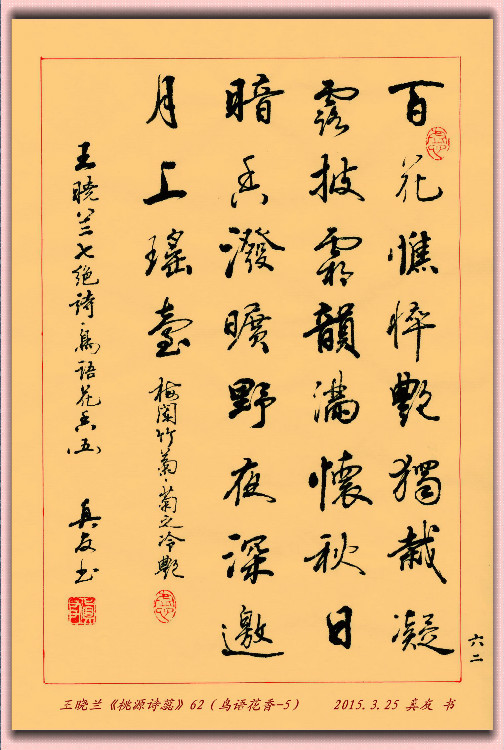 百花憔悴艷獨栽凝
露披霜韻滿懷秋日
暗香潑曠野夜深邀
月上瑤臺
梅蘭竹菊·菊之冷艷
王曉兰七绝诗·鳥语花香(五)
真友书
六二
王晓兰《桃源诗蕊》62(鸟语花香-5) 2015.3.25 真友 书